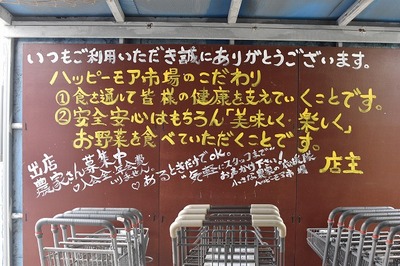 いつもご利用いただき誠にありがとうございます。
ハッピーモア市場のこだわり
①食を通して皆様の健康を支えていくことです。
②安全安心はもちろん「美味しく・楽しく」
お野菜を食べていただくことです。
店主
出店
農家さん募集中
入会金・年会費
いりません。
♡あるときだけでOK。
気軽にスタッフまで
お声かけ下さい
小さな農家の応援隊
ハッピーモア市場